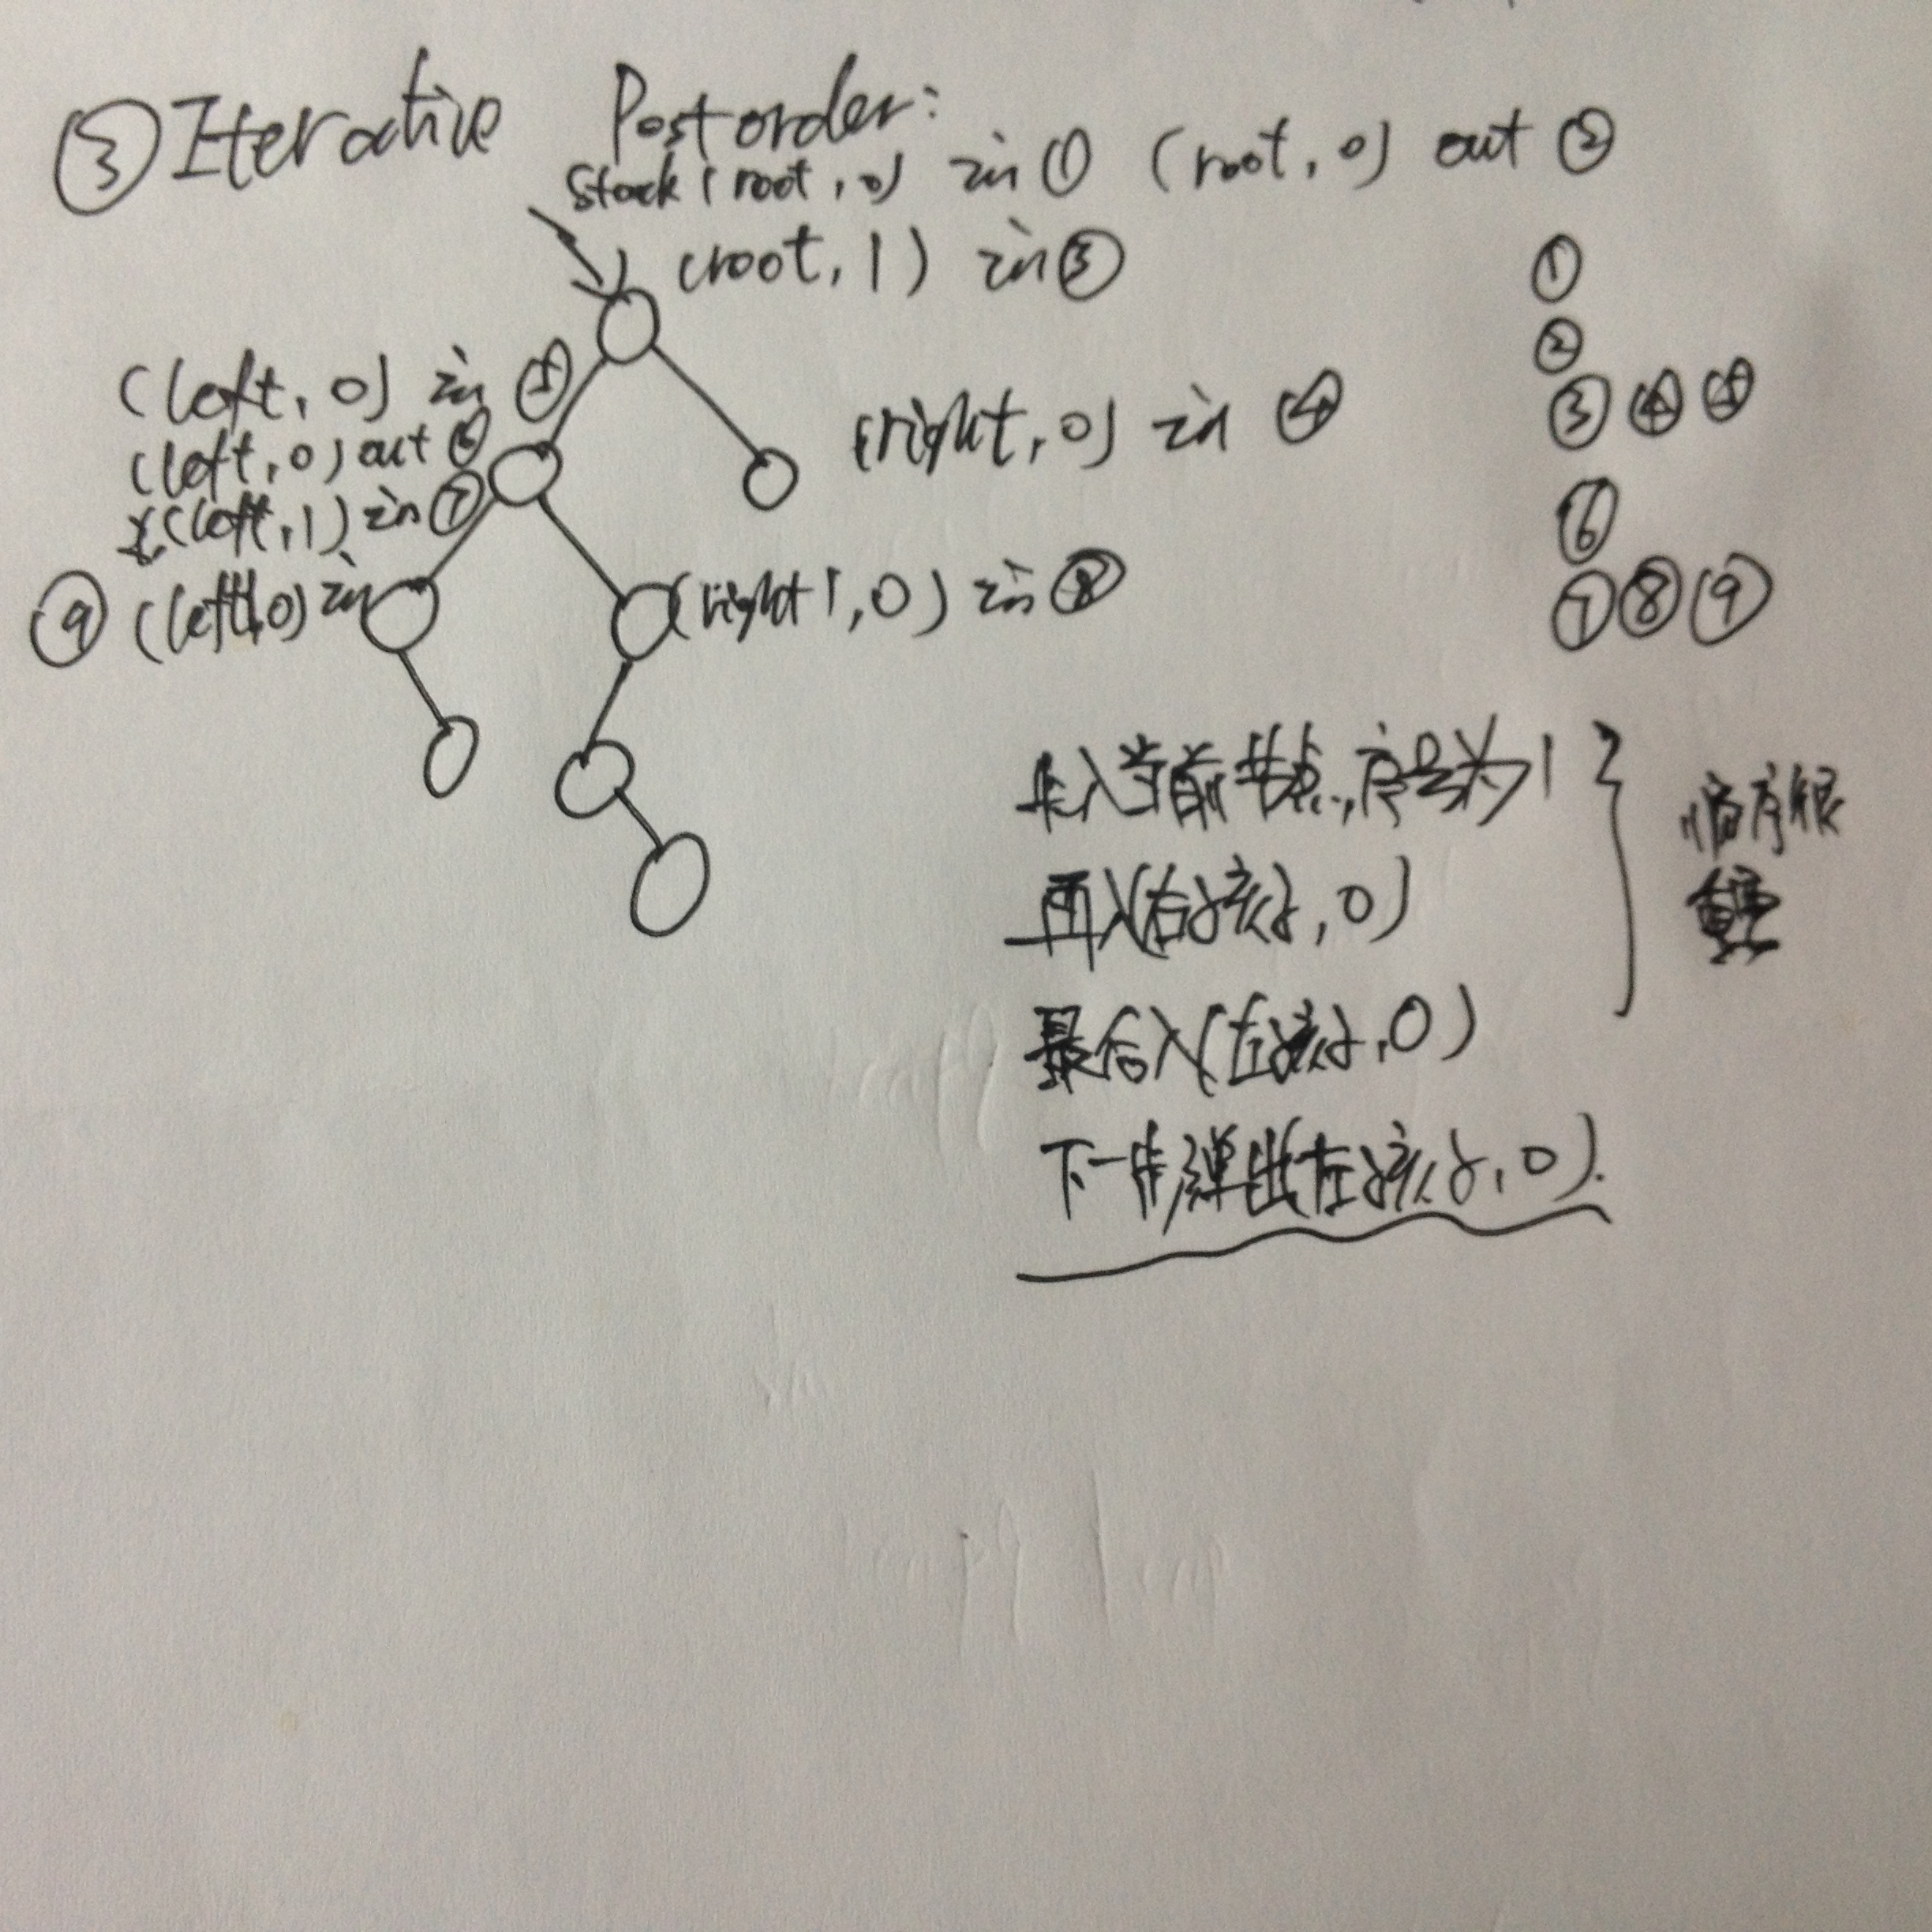 ③ Iterative Postorder:
Stack (root, 0) in ① (root, 0) out ②
(root, 1) in ③
(left, 0) in ⑤
(left, 0) out ⑥
(left, 1) in ⑦
(right, 0) in ④
⑨ (left1, 0) in
(right1, 0) in ⑧
①
②
③ ④ ⑤
⑥
⑦ ⑧ ⑨
先入当前节点, 序号为1
再入(右孩子, 0)
最后入(左孩子, 0)
下一步弹出(左孩子, 0).
顺序很
重要